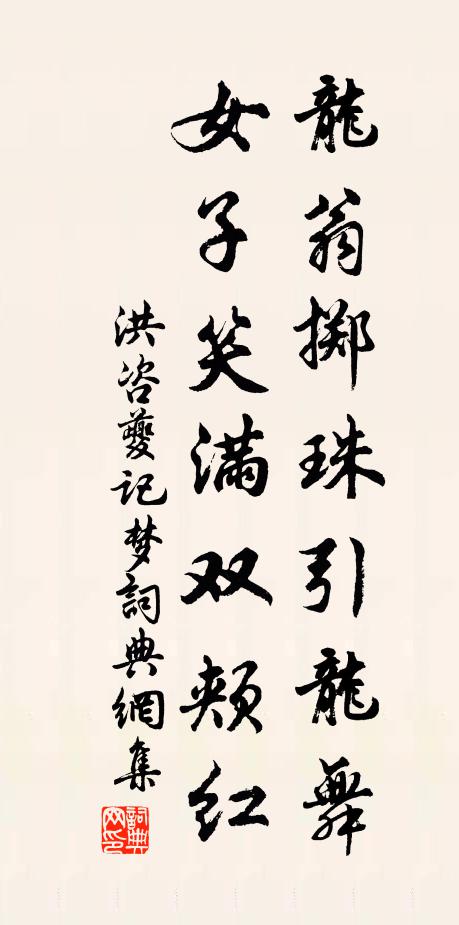 龍翁掷珠引龍舞
女子笑满双颊红
洪咨夔记梦詞典網集
詞典网印